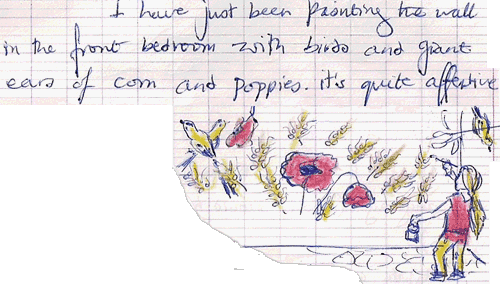 I have just been painting the wall
in the front bedroom with birds and giant
ears of corn and poppies. it's quite affective